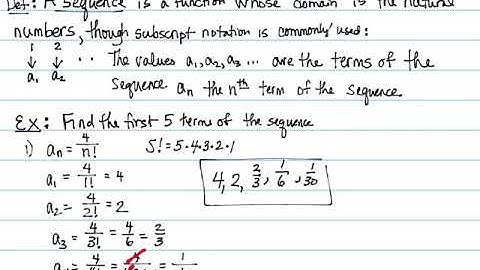 Def: A sequence is a function whose domain is the natural
numbers, though subscript notation is commonly used:
1 2
↓ ↓ ·· The values a₁, a₂, a₃ ... are the terms of the
a₁ a₂ sequence aₙ the nᵗʰ term of the sequence.
EX: Find the first 5 terms of the sequence
1) aₙ = 4/n! 5! = 5·4·3·2·1
a₁ = 4/1! = 4
4, 2, 2/3, 1/6, 1/30
a₂ = 4/2! = 2
a₃ = 4/3! = 4/6 = 2/3